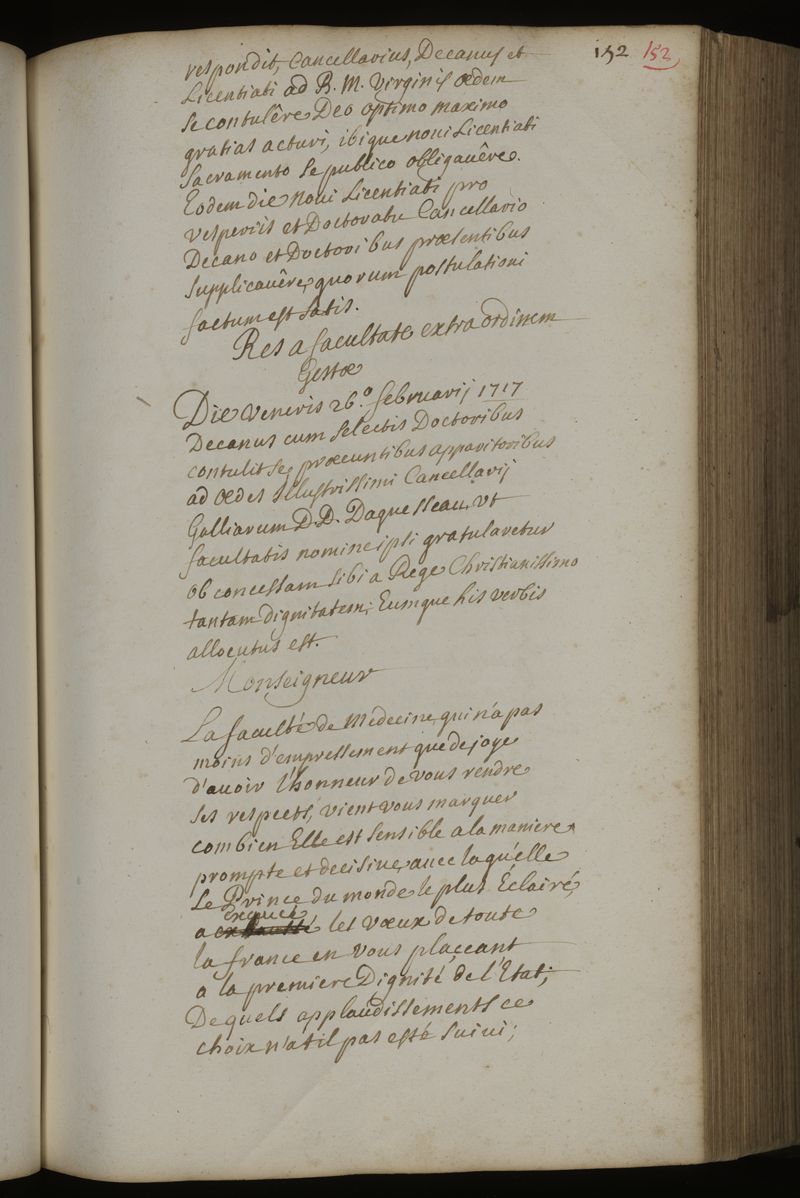 152 152
respondit, Cancellarius, Decanus et
Licentiati ad B. M. Virginis ædem
se contulêre Deo optimo maximo
gratias acturi, ibique noui Licentiati
Sacramento se publico obligauêre.
Eodem die noui Licentiati pro
Vesperiis et Doctoratu Cancellario
Decano et Doctoribus præsentibus
supplicauêre, quorum postulationi
factum est satis.
Res a facultate extra ordinem
Gestæ
Die Veneris 26.º februarij 1717
Decanus cum selectis Doctoribus
contulit se, præeuntibus apparitoribus
ad ædes Illustrissimi Cancellarij
Galliarum D. D. Daguesseau, Vt
facultatis nomine ipsi gratularetur
ob concessam sibi a Rege Christianissimo
tantam Dignitatem; Eumque his verbis
allocutus est.
Monseigneur
La faculté de Médecine, qui n'a pas
moins d'empressement que de joye
d'auoir l'honneur de vous rendre
ses respects, vient vous marquer
combien Elle est sensible a la maniere
prompte et decisiue, auec laquelle
Le Prince du monde le plus Éclairé,
exaucé
a les vœux de toute
la france en Vous plaçeant
a la premiere Dignité de l'Etat;
De quels applaudissements ce
choix n'a til pas esté suiui;